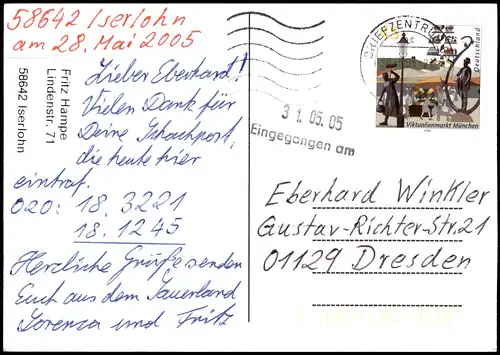 58642 Iserlohn
am 28. Mai 2005
Fritz Hampe
Lindenstr. 71
58642 Iserlohn
Lieber Eberhard!
Vielen Dank für
Deine Schachpost,
die heute hier
eintraf.
020: 18. 3221
18. 1245
Herzliche Grüße senden
Euch aus dem Sauerland
Lorenza und Fritz
BRIEFZENTRUM
Deutschland
Viktualienmarkt München
31.05.05
Eingegangen am
Eberhard Winkler
Gustav-Richter-Str.21
01129 Dresden